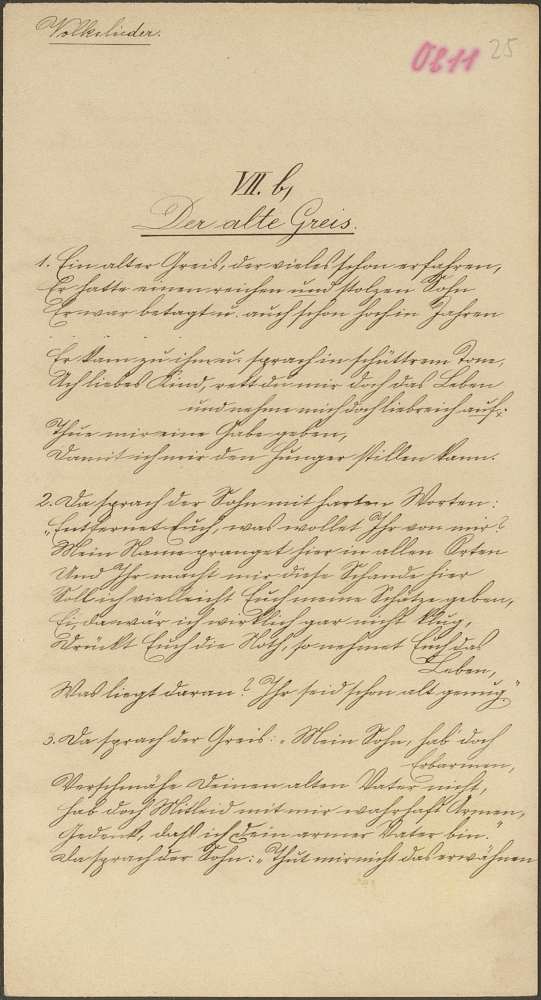 Volkslieder.
Ob 11 25
VII. b,
Der alte Greis.
1. Ein alter Greis, der vieles schon erfahren,
Er hatte einen reichen und stolzen Sohn
Er war betagt u. auch schon hoch in Jahren
Er kam zu ihm u. sprach in schüttrem Tone,
Ach liebes Kind, rett du mir doch das Leben
und nehme mich doch liebreich auf:
Thue mir eine Gabe geben,
Damit ich mir den Hunger stillen kann.
2. Da sprach der Sohn mit harten Worten:
"Entfernet Euch, was wollet Ihr von mir?
Mein Name pranget hier in allen Orten
Und Ihr macht mir diese Schande hier
Soll ich vielleicht Euch meine Schätze geben,
Ei, da wär ich wirklich gar nicht klug,
Drückt Euch die Noth, so nehmet Euch das
Leben,
Was liegt daran? Ihr seid schon alt genug."
3. Da sprach der Greis: "Mein Sohn, hab doch
Erbarmen,
Verschmähe Deinen alten Vater nicht,
Hab doch Mitleid mit mir wahrhaft Armen,
Gedenk, daß ich Dein armer Vater bin."
Da sprach der Sohn: "Thut mir nicht das erwähnen